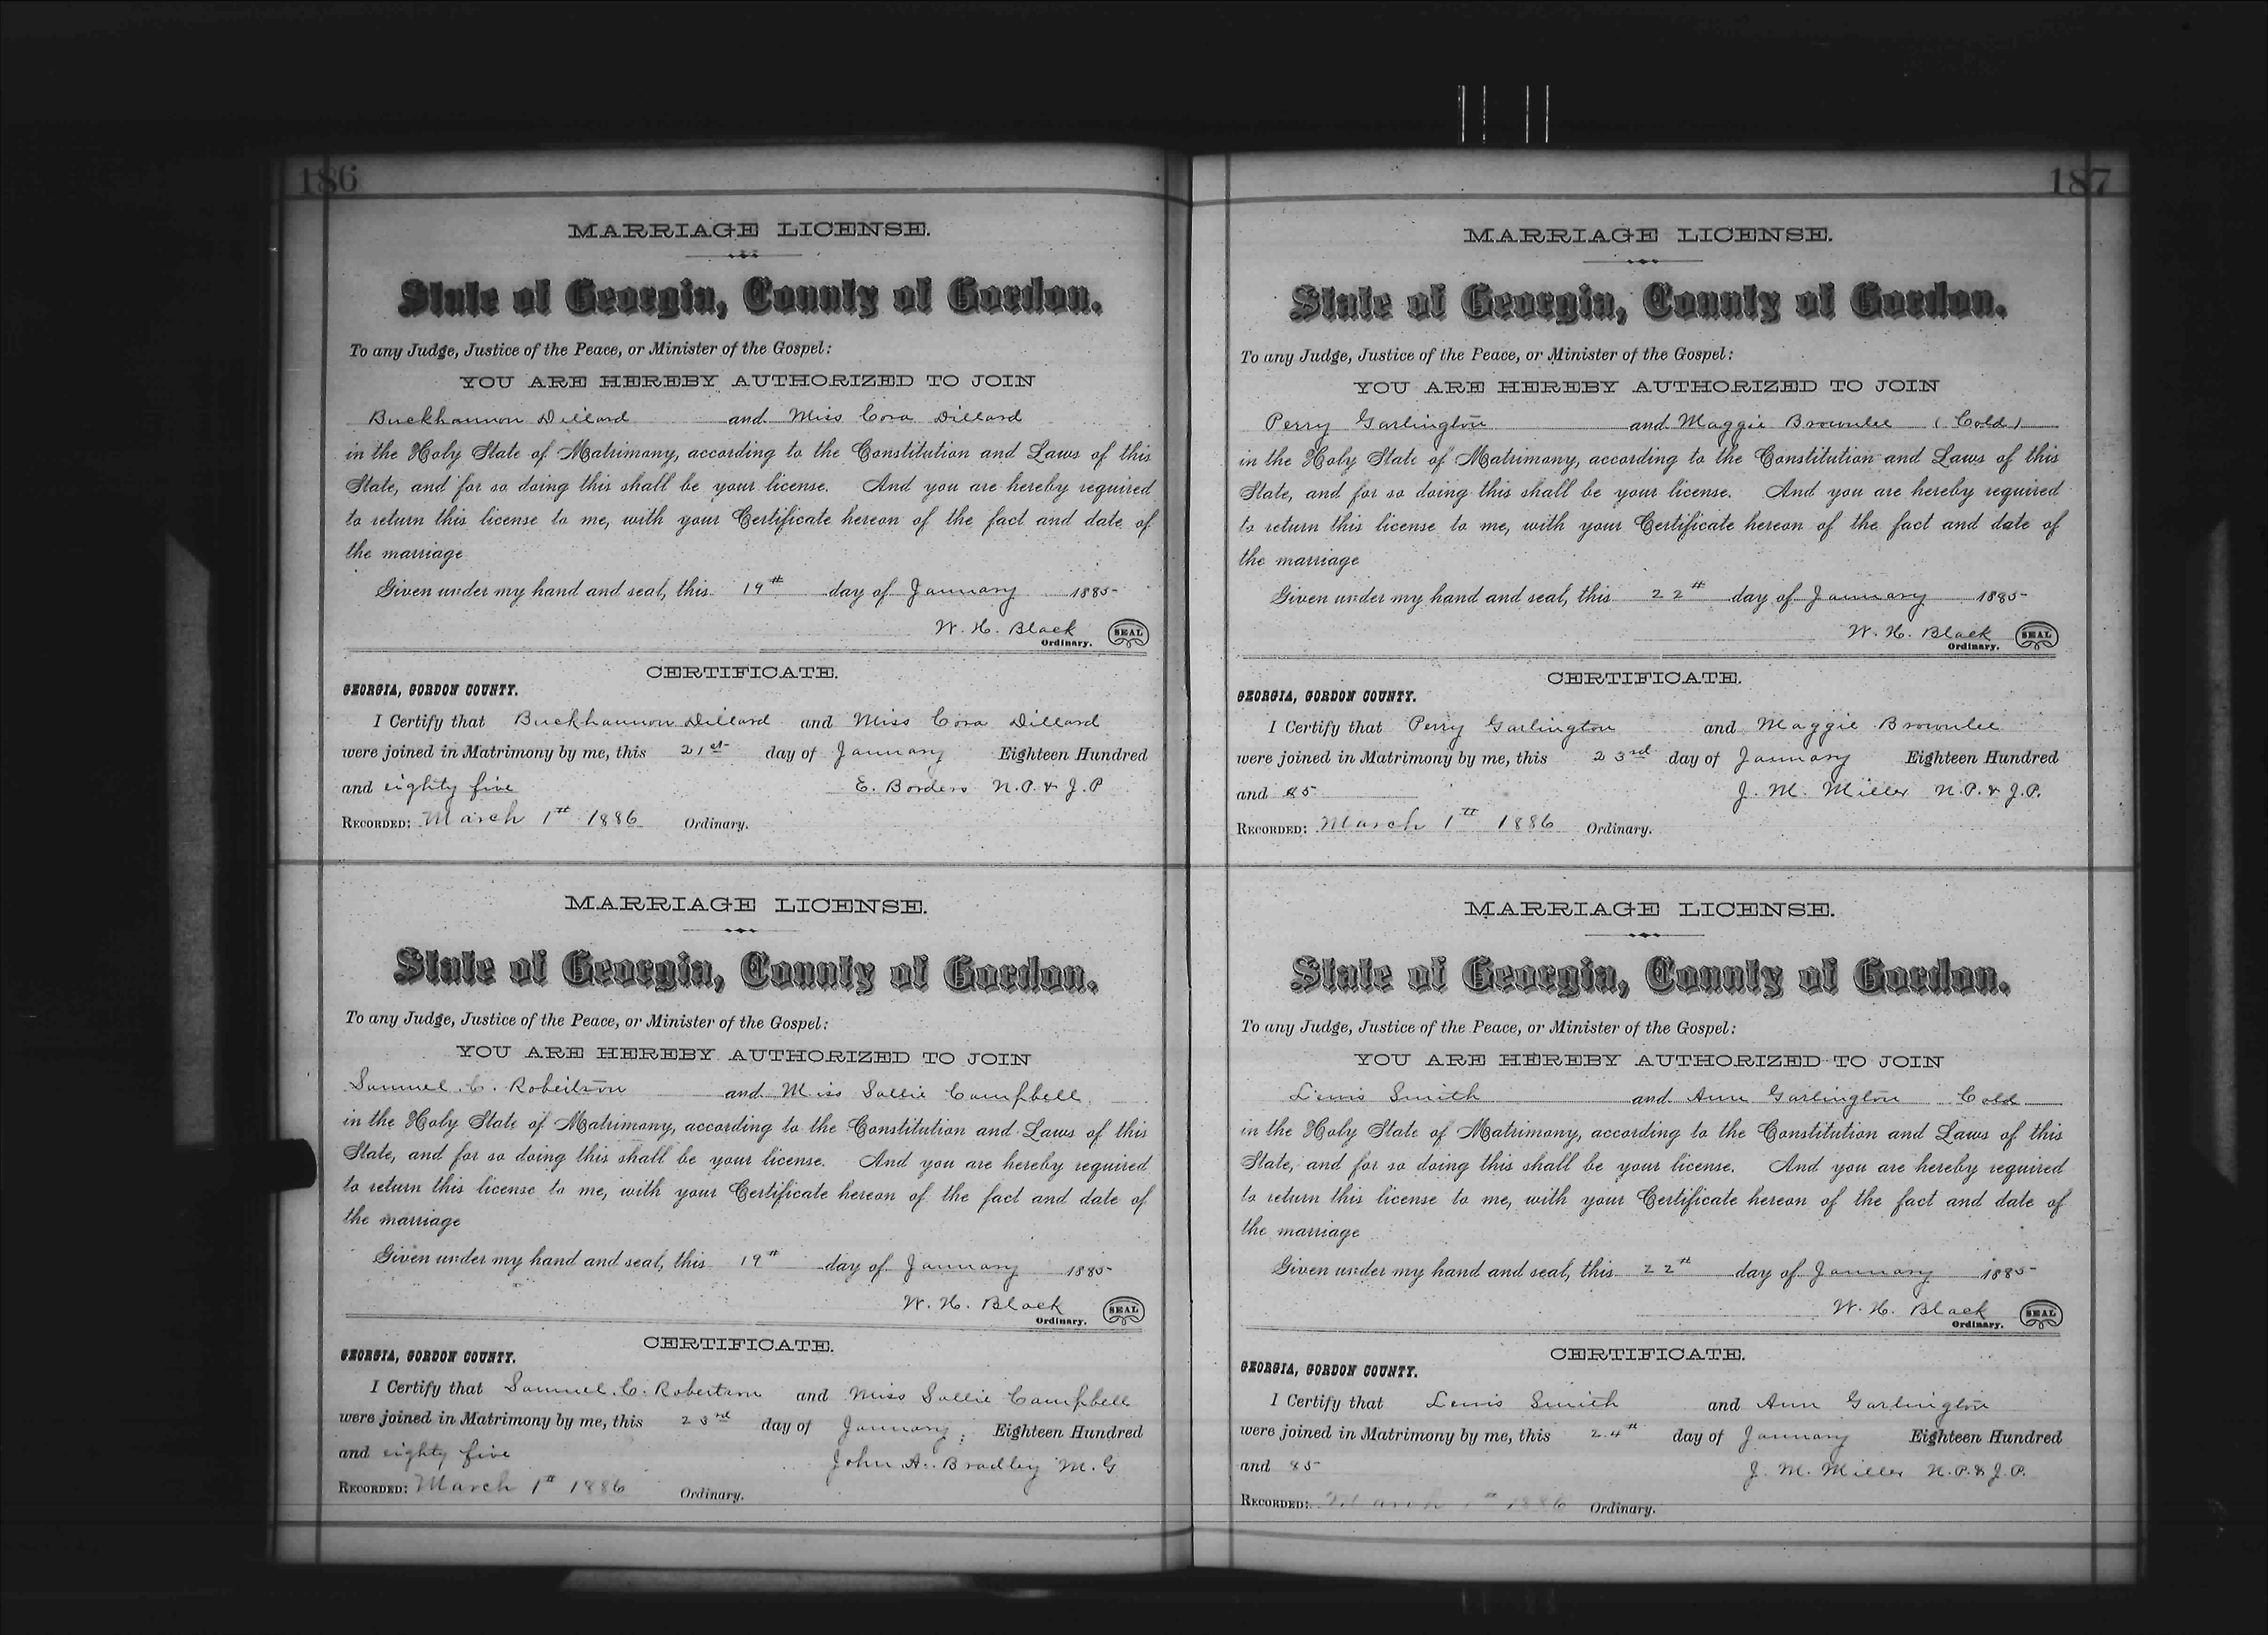 186
MARRIAGE LICENSE.
State of Georgia, County of Gordon.
To any Judge, Justice of the Peace, or Minister of the Gospel:
YOU ARE HEREBY AUTHORIZED TO JOIN
Buckhannon Dillard and Miss Cora Dillard
in the Holy State of Matrimony, according to the Constitution and Laws of this
State, and for so doing this shall be your license. And you are hereby required
to return this license to me, with your Certificate hereon of the fact and date of
the marriage
Given under my hand and seal, this 19th day of January 1885
W. H. Black SEAL
Ordinary.
CERTIFICATE.
GEORGIA, GORDON COUNTY.
I Certify that Buckhannon Dillard and Miss Cora Dillard
were joined in Matrimony by me, this 21st day of January Eighteen Hundred
and eighty five E. Borders N.P. & J.P
RECORDED: March 1st 1886 Ordinary.
MARRIAGE LICENSE.
State of Georgia, County of Gordon.
To any Judge, Justice of the Peace, or Minister of the Gospel:
YOU ARE HEREBY AUTHORIZED TO JOIN
Samuel C. Robertson and Miss Sallie Campbell
in the Holy State of Matrimony, according to the Constitution and Laws of this
State, and for so doing this shall be your license. And you are hereby required
to return this license to me, with your Certificate hereon of the fact and date of
the marriage
Given under my hand and seal, this 19th day of January 1885
W. H. Black SEAL
Ordinary.
CERTIFICATE.
GEORGIA, GORDON COUNTY.
I Certify that Samuel C. Robertson and Miss Sallie Campbell
were joined in Matrimony by me, this 23rd day of January Eighteen Hundred
and eighty five John A. Bradley M.G
RECORDED: March 1st 1886 Ordinary.
187
MARRIAGE LICENSE.
State of Georgia, County of Gordon.
To any Judge, Justice of the Peace, or Minister of the Gospel:
YOU ARE HEREBY AUTHORIZED TO JOIN
Perry Garlington and Maggie Brownlee (Cold)
in the Holy State of Matrimony, according to the Constitution and Laws of this
State, and for so doing this shall be your license. And you are hereby required
to return this license to me, with your Certificate hereon of the fact and date of
the marriage
Given under my hand and seal, this 22th day of January 1885
W. H. Black SEAL
Ordinary.
CERTIFICATE.
GEORGIA, GORDON COUNTY.
I Certify that Perry Garlington and Maggie Brownlee
were joined in Matrimony by me, this 23rd day of January Eighteen Hundred
and 85 J. M. Miller N.P. & J.P.
RECORDED: March 1st 1886 Ordinary.
MARRIAGE LICENSE.
State of Georgia, County of Gordon.
To any Judge, Justice of the Peace, or Minister of the Gospel:
YOU ARE HEREBY AUTHORIZED TO JOIN
Lewis Smith and Ann Garlington Cold
in the Holy State of Matrimony, according to the Constitution and Laws of this
State, and for so doing this shall be your license. And you are hereby required
to return this license to me, with your Certificate hereon of the fact and date of
the marriage
Given under my hand and seal, this 22th day of January 1885
W. H. Black SEAL
Ordinary.
CERTIFICATE.
GEORGIA, GORDON COUNTY.
I Certify that Lewis Smith and Ann Garlington
were joined in Matrimony by me, this 24th day of January Eighteen Hundred
and 85 J. M. Miller N.P. & J.P.
RECORDED: March 1st 1886 Ordinary.